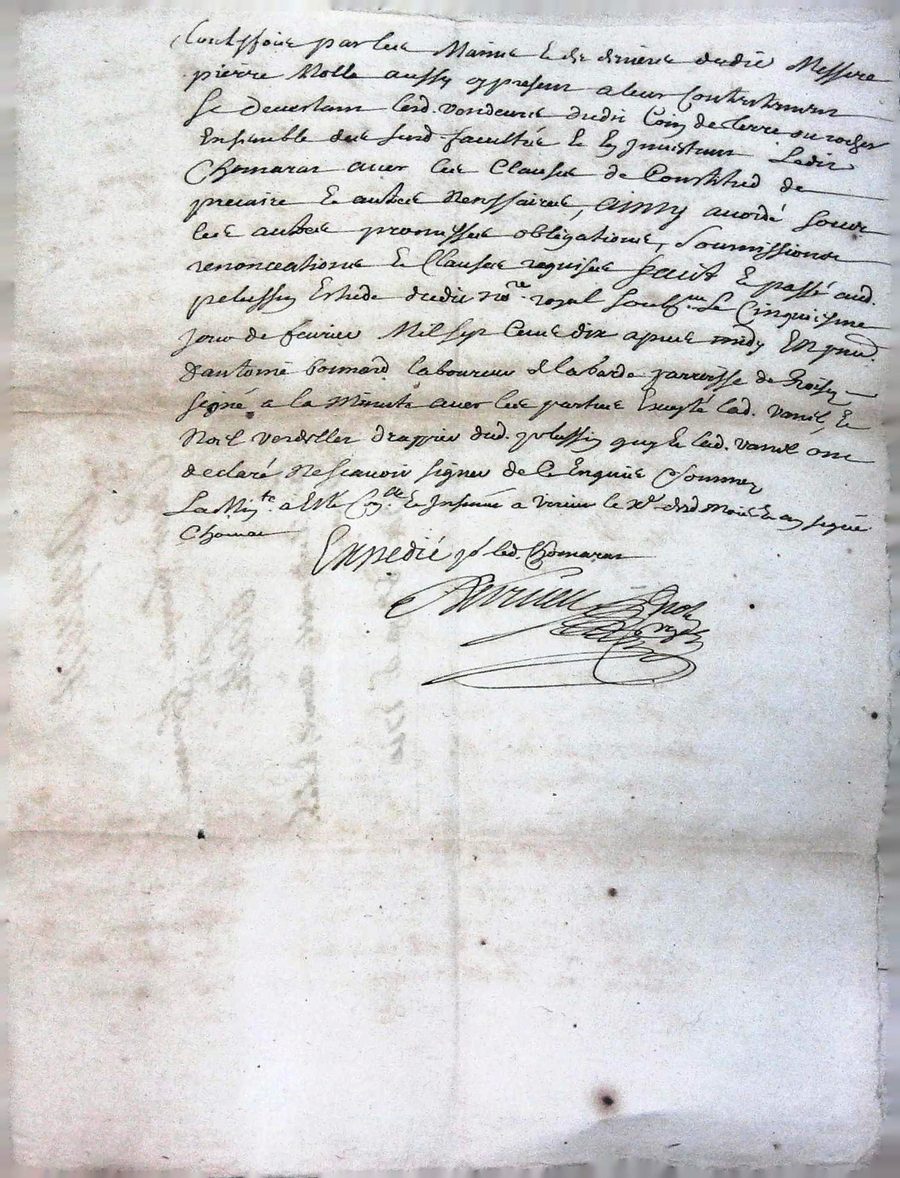 touttefois par les Mains & des deniers dudit Messire
pierre Molle aussy cy present a leur Contentement
Se devestant lesd. vendeurs dudit Coin de terre ou rocher
Ensemble des susd. facultés & En Investant Ledit
Chomaran avec les Clauses de Constitud de
precaire & autres neussaires, ainsy acordé soubz
les autres promesses obligations, soumissions
renonceations & Clauses requises fait & passé aud.
pelussin Estude dudit no.re royal soubs.né Le Cinquiesme
jour de fevrier Mil sept Cents dix apres midy En pnce.
D'antoine bonnard laboureur de la barda parroisse de Roisey
signé a la Minute avec les parties Excepté lad. vanel, &
Noel verdellet drappier dud. pelussin quy & lad. vanel ont
declaré Ne scavoir signer de ce Enquis & sommez
La Min.te a Esté Con.lée & Insinuée a virieu le Xe. dud. Mois & an signé
Chomat
Expedié pr led. Chomaran